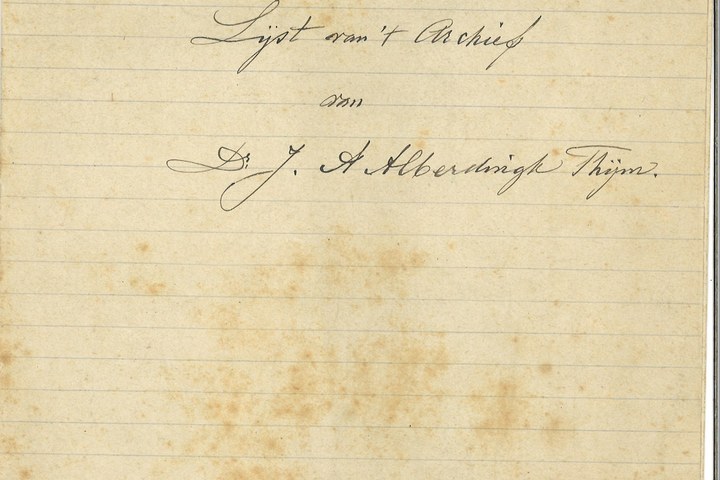 Lijst van 't Archief
van
Dr. J. A Alberdingk Thijm.